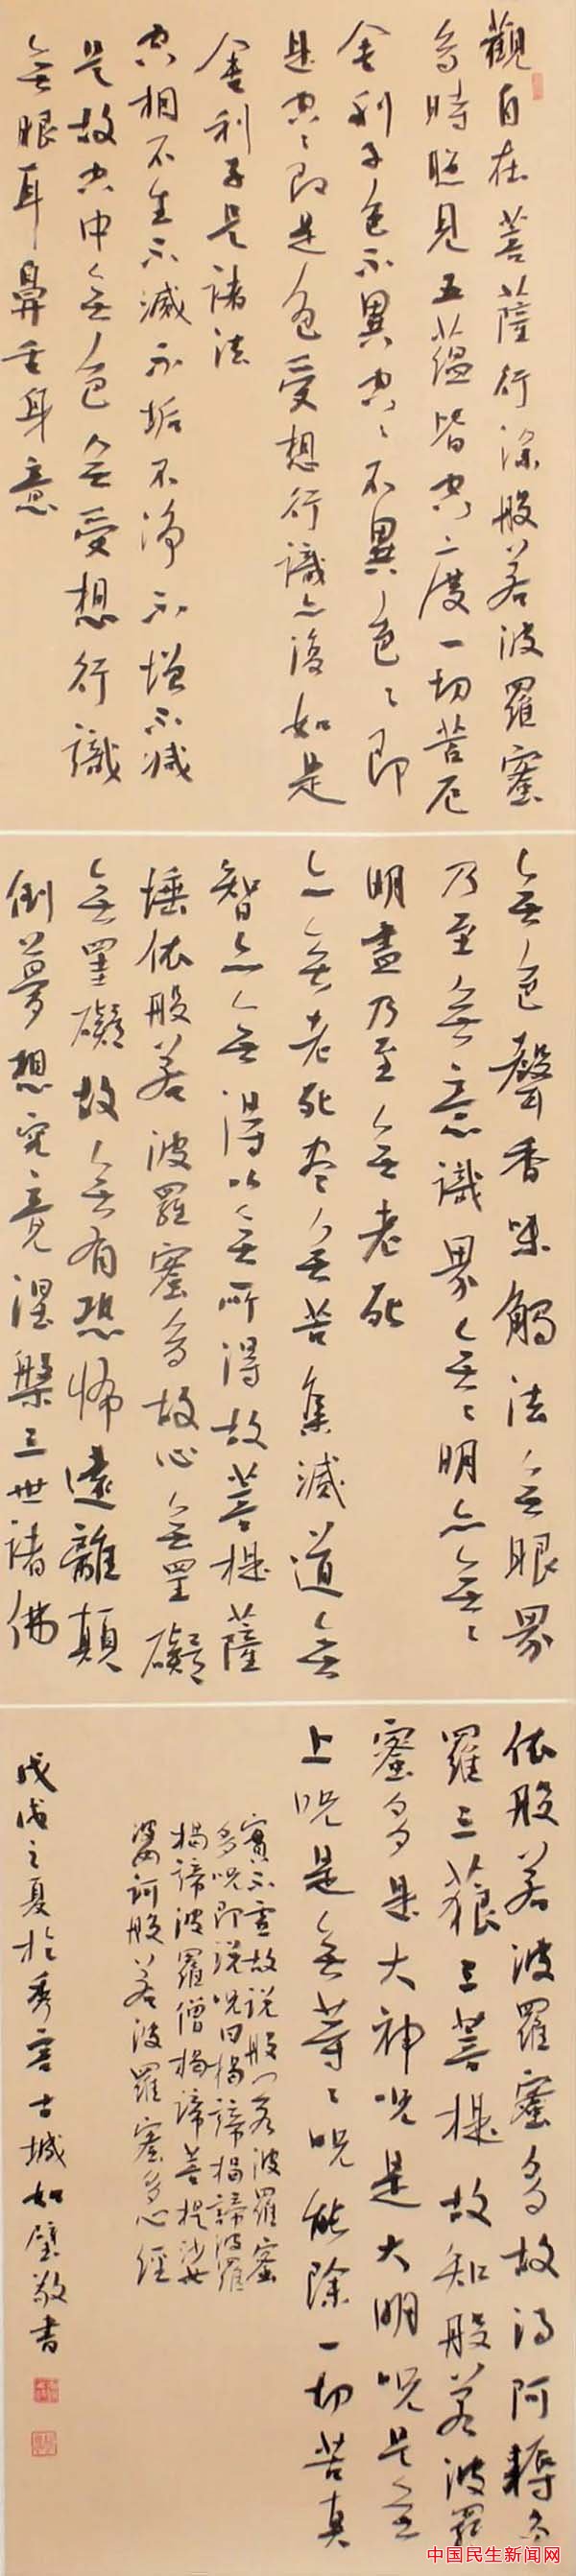 觀自在菩薩行深般若波羅蜜
多時照見五蘊皆空二度一切苦厄
舍利子色不異空〻不異色〻即
是空〻即是色受想行識亦復如是
舍利子是諸法
空相不生不滅不垢不淨不增不減
是故空中無色無受想行識
無眼耳鼻舌身意
無色聲香味觸法無眼界
乃至無意識界無〻明亦無〻
明盡乃至無老死
亦無老死盡無苦集滅道無
智亦無得以無所得故菩提薩
埵依般若波羅蜜多故心無罣礙
無罣礙故無有恐怖遠離顛
倒夢想究竟涅槃三世諸佛
依般若波羅蜜多故得阿耨多
羅三藐三菩提故知般若波羅
蜜多是大神咒是大明咒是無
上咒是無等〻咒能除一切苦真
實不虛故說般若波羅蜜
多咒即說咒曰揭諦揭諦波羅
揭諦波羅僧揭諦菩提娑
婆訶般若波羅蜜多心經
戊戌之夏於秀容古城如璧敬書
中国民生新闻网